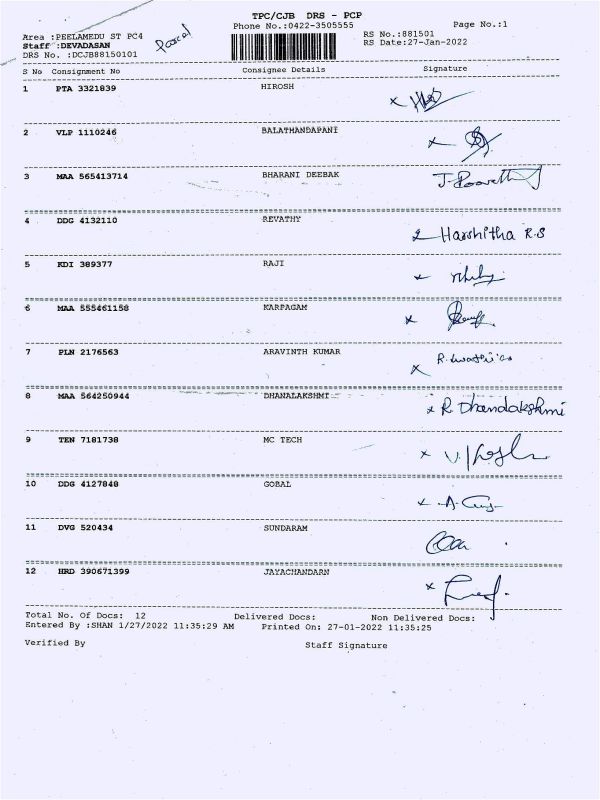 TPC/CJB DRS - PCP
Phone No.:0422-3505555 Page No.:1
Area :PEELAMEDU ST PC4 RS No.:881501
Staff :DEVADASAN RS Date:27-Jan-2022
DRS No. :DCJB88150101
S No Consignment No Consignee Details Signature
1 PTA 3321839 HIROSH
2 VLP 1110246 BALATHANDAPANI
3 MAA 565413714 BHARANI DEEBAK
4 DDG 4132110 REVATHY Harshitha R.S
5 KDI 389377 RAJI
6 MAA 555461158 KARPAGAM
7 PLN 2176563 ARAVINTH KUMAR
8 MAA 564250944 DHANALAKSHMI R. Dhandalakshmi
9 TEN 7181738 MC TECH
10 DDG 4127848 GOBAL
11 DVG 520434 SUNDARAM
12 HRD 390671399 JAYACHANDARN
Total No. Of Docs: 12 Delivered Docs: Non Delivered Docs:
Entered By :SHAN 1/27/2022 11:35:29 AM Printed On: 27-01-2022 11:35:25
Verified By Staff Signature